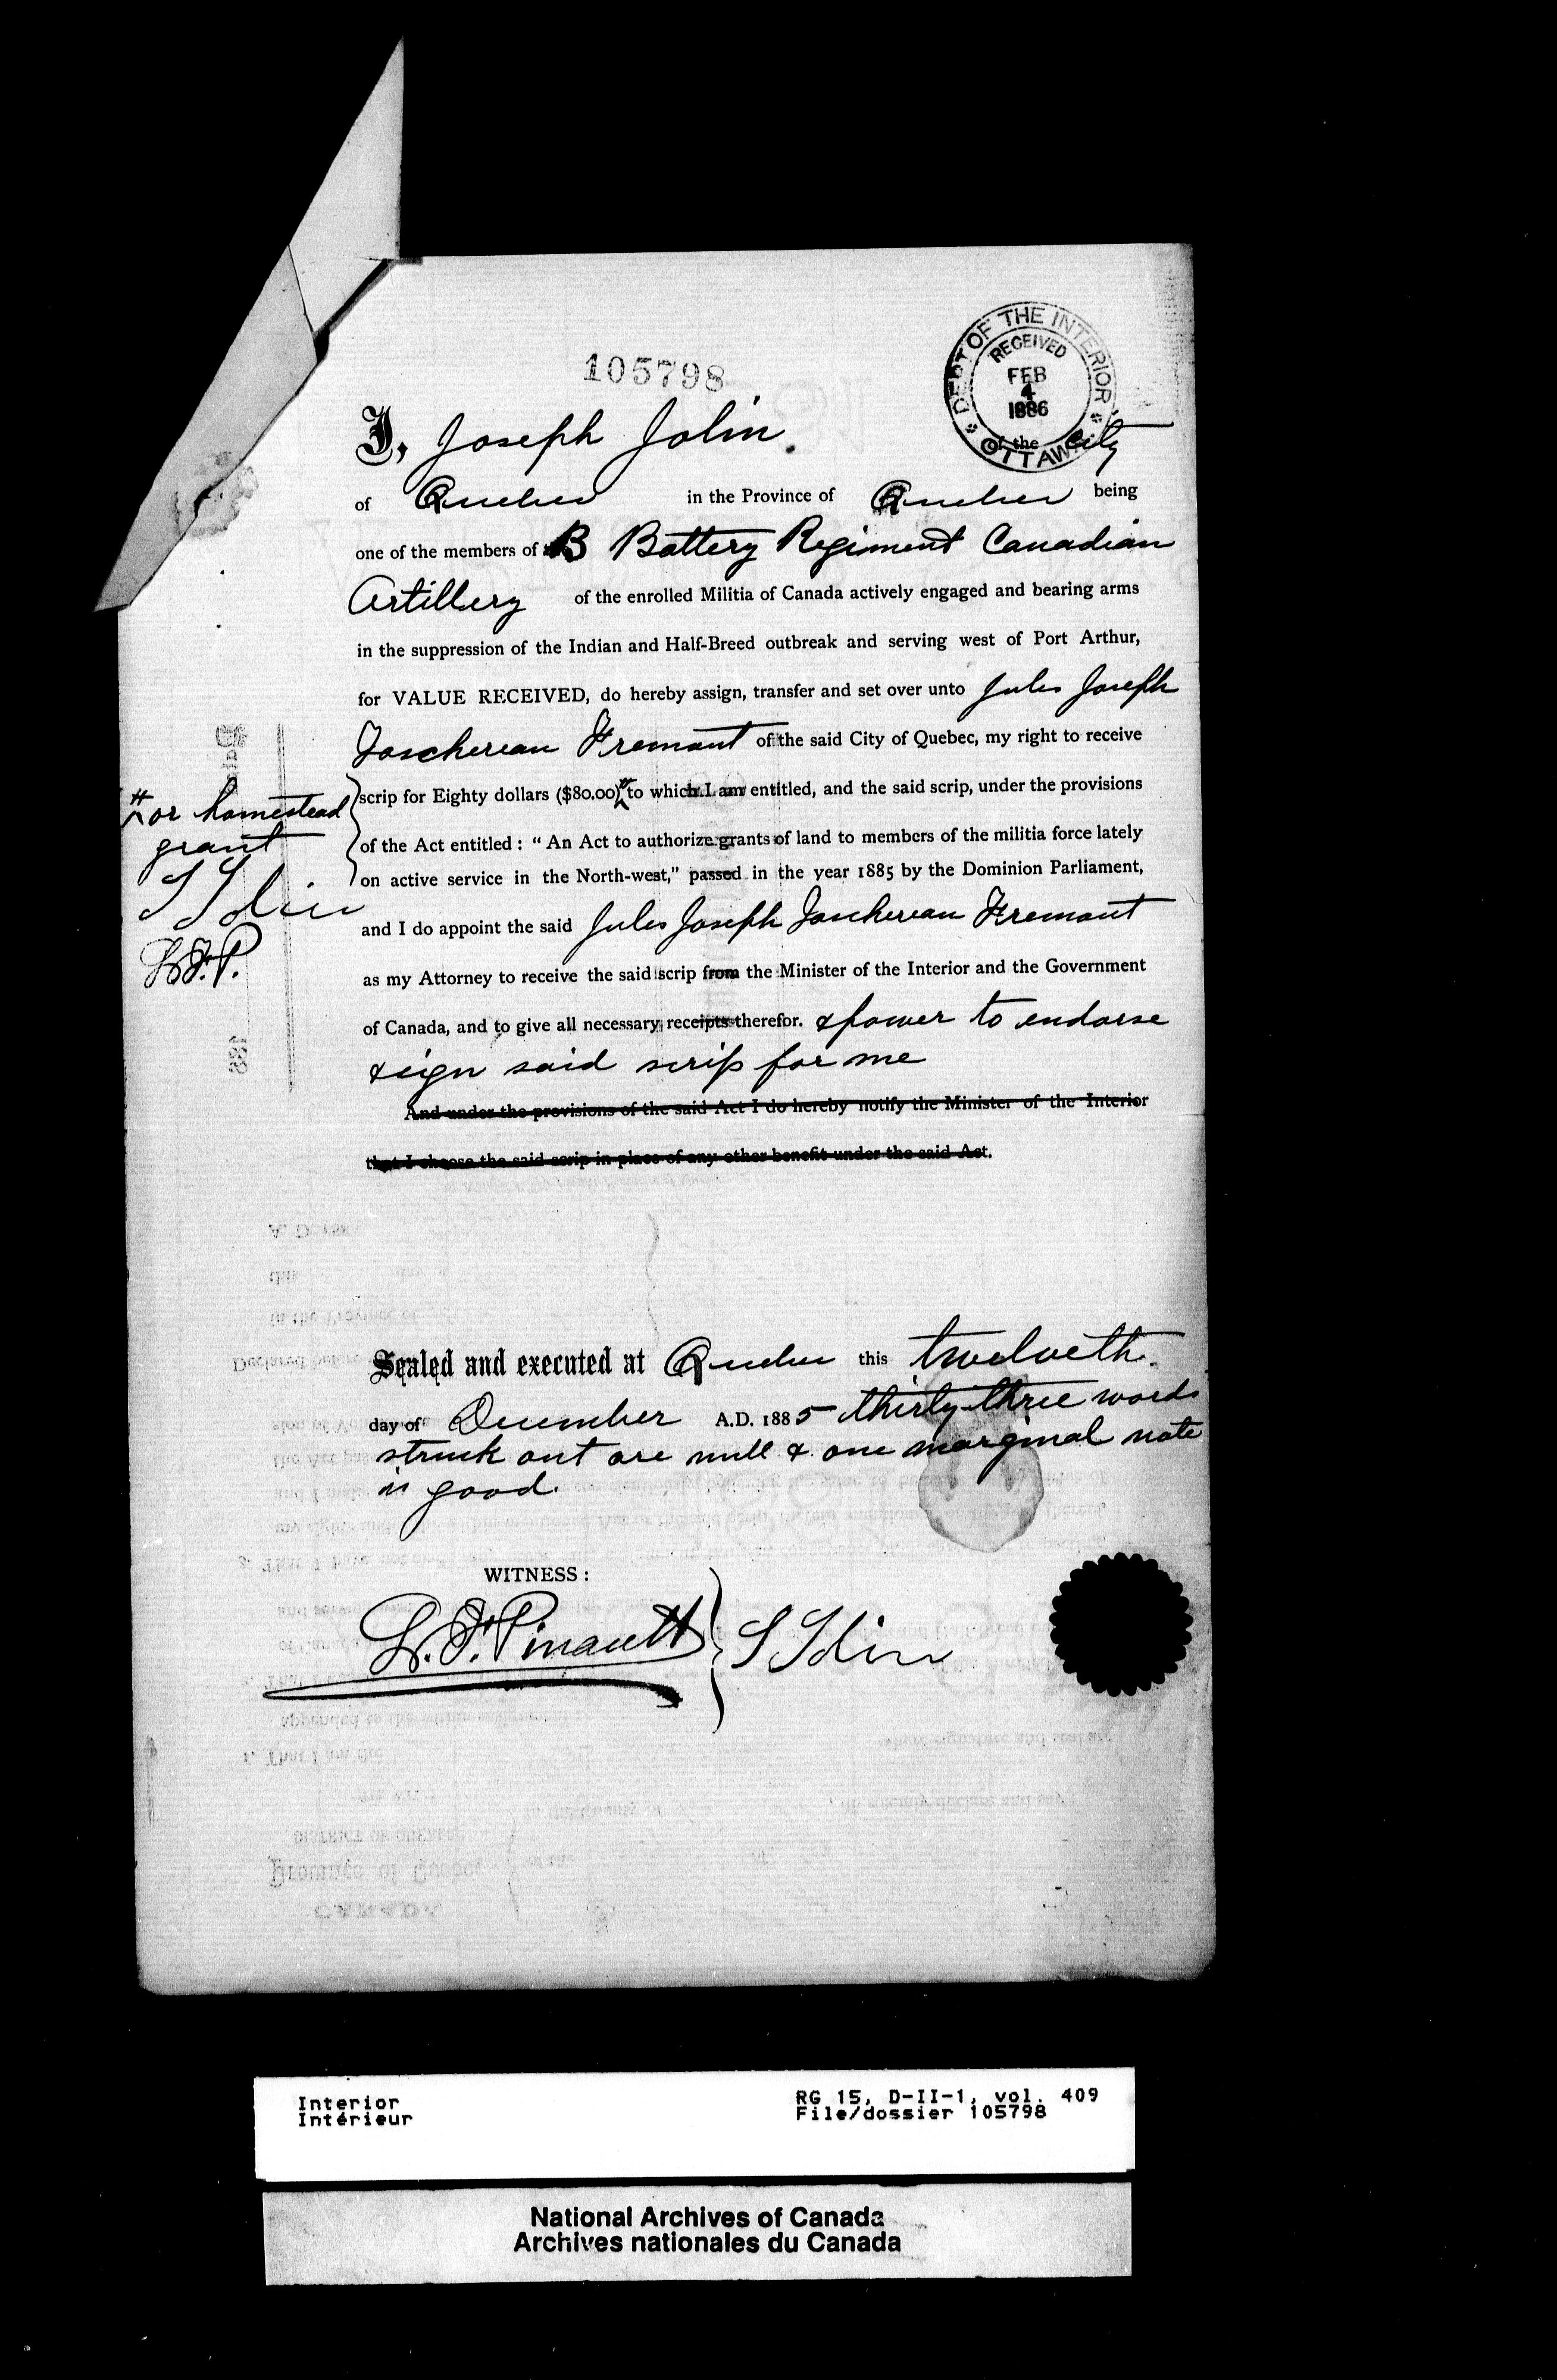 105798
DEPT OF THE INTERIOR
RECEIVED
FEB
4
1886
OTTAWA
I, Joseph Jolin. of the City
of Quebec in the Province of Quebec being
one of the members of B Battery Regiment Canadian
Artillery of the enrolled Militia of Canada actively engaged and bearing arms
in the suppression of the Indian and Half-Breed outbreak and serving west of Port Arthur,
for VALUE RECEIVED, do hereby assign, transfer and set over unto Jules Joseph
Taschereau Fremont of the said City of Quebec, my right to receive
scrip for Eighty dollars ($80.00) to which I am entitled, and the said scrip, under the provisions
or homestead
grant
of the Act entitled : “ An Act to authorize grants of land to members of the militia force lately
on active service in the North-west,” passed in the year 1885 by the Dominion Parliament,
J Jolin
L.F.P.
and I do appoint the said Jules Joseph Taschereau Fremont
as my Attorney to receive the said scrip from the Minister of the Interior and the Government
of Canada, and to give all necessary receipts therefor. & power to endorse
& sign said scrip for me
And under the provisions of the said Act I do hereby notify the Minister of the Interior
that I choose the said scrip in place of any other benefit under the said Act.
Sealed and executed at Quebec this twelveth
day of December A.D. 1885 thirty three words
struck out are null & one marginal note
is good.
WITNESS :
L. F. Pinault J Jolin
Interior
Intérieur
RG 15, D-II-1, vol. 409
File/dossier 105798
National Archives of Canada
Archives nationales du Canada